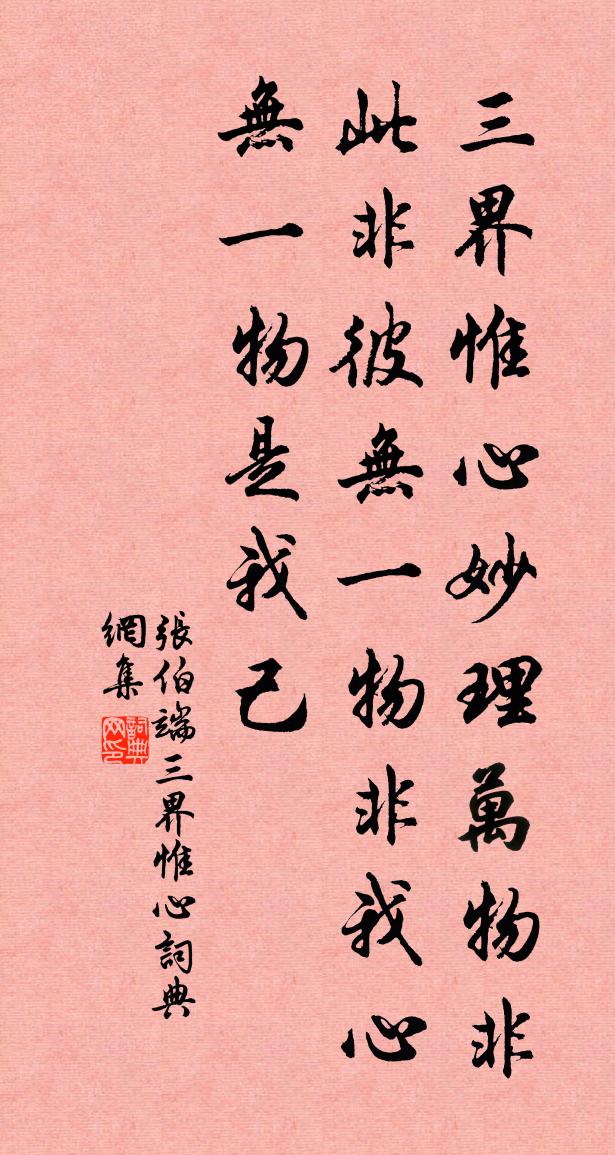 三界惟心妙理萬物非
此非彼無一物非我心
無一物是我己
張伯端三界惟心詞典
網集
詞典
网印